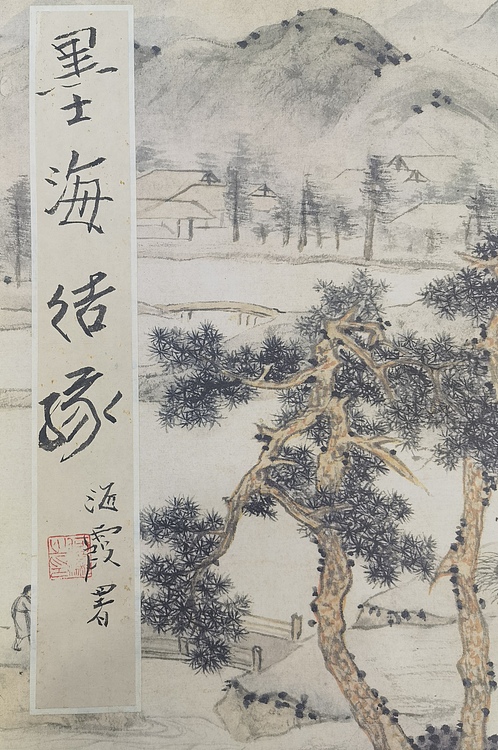 墨海结缘
海霞署